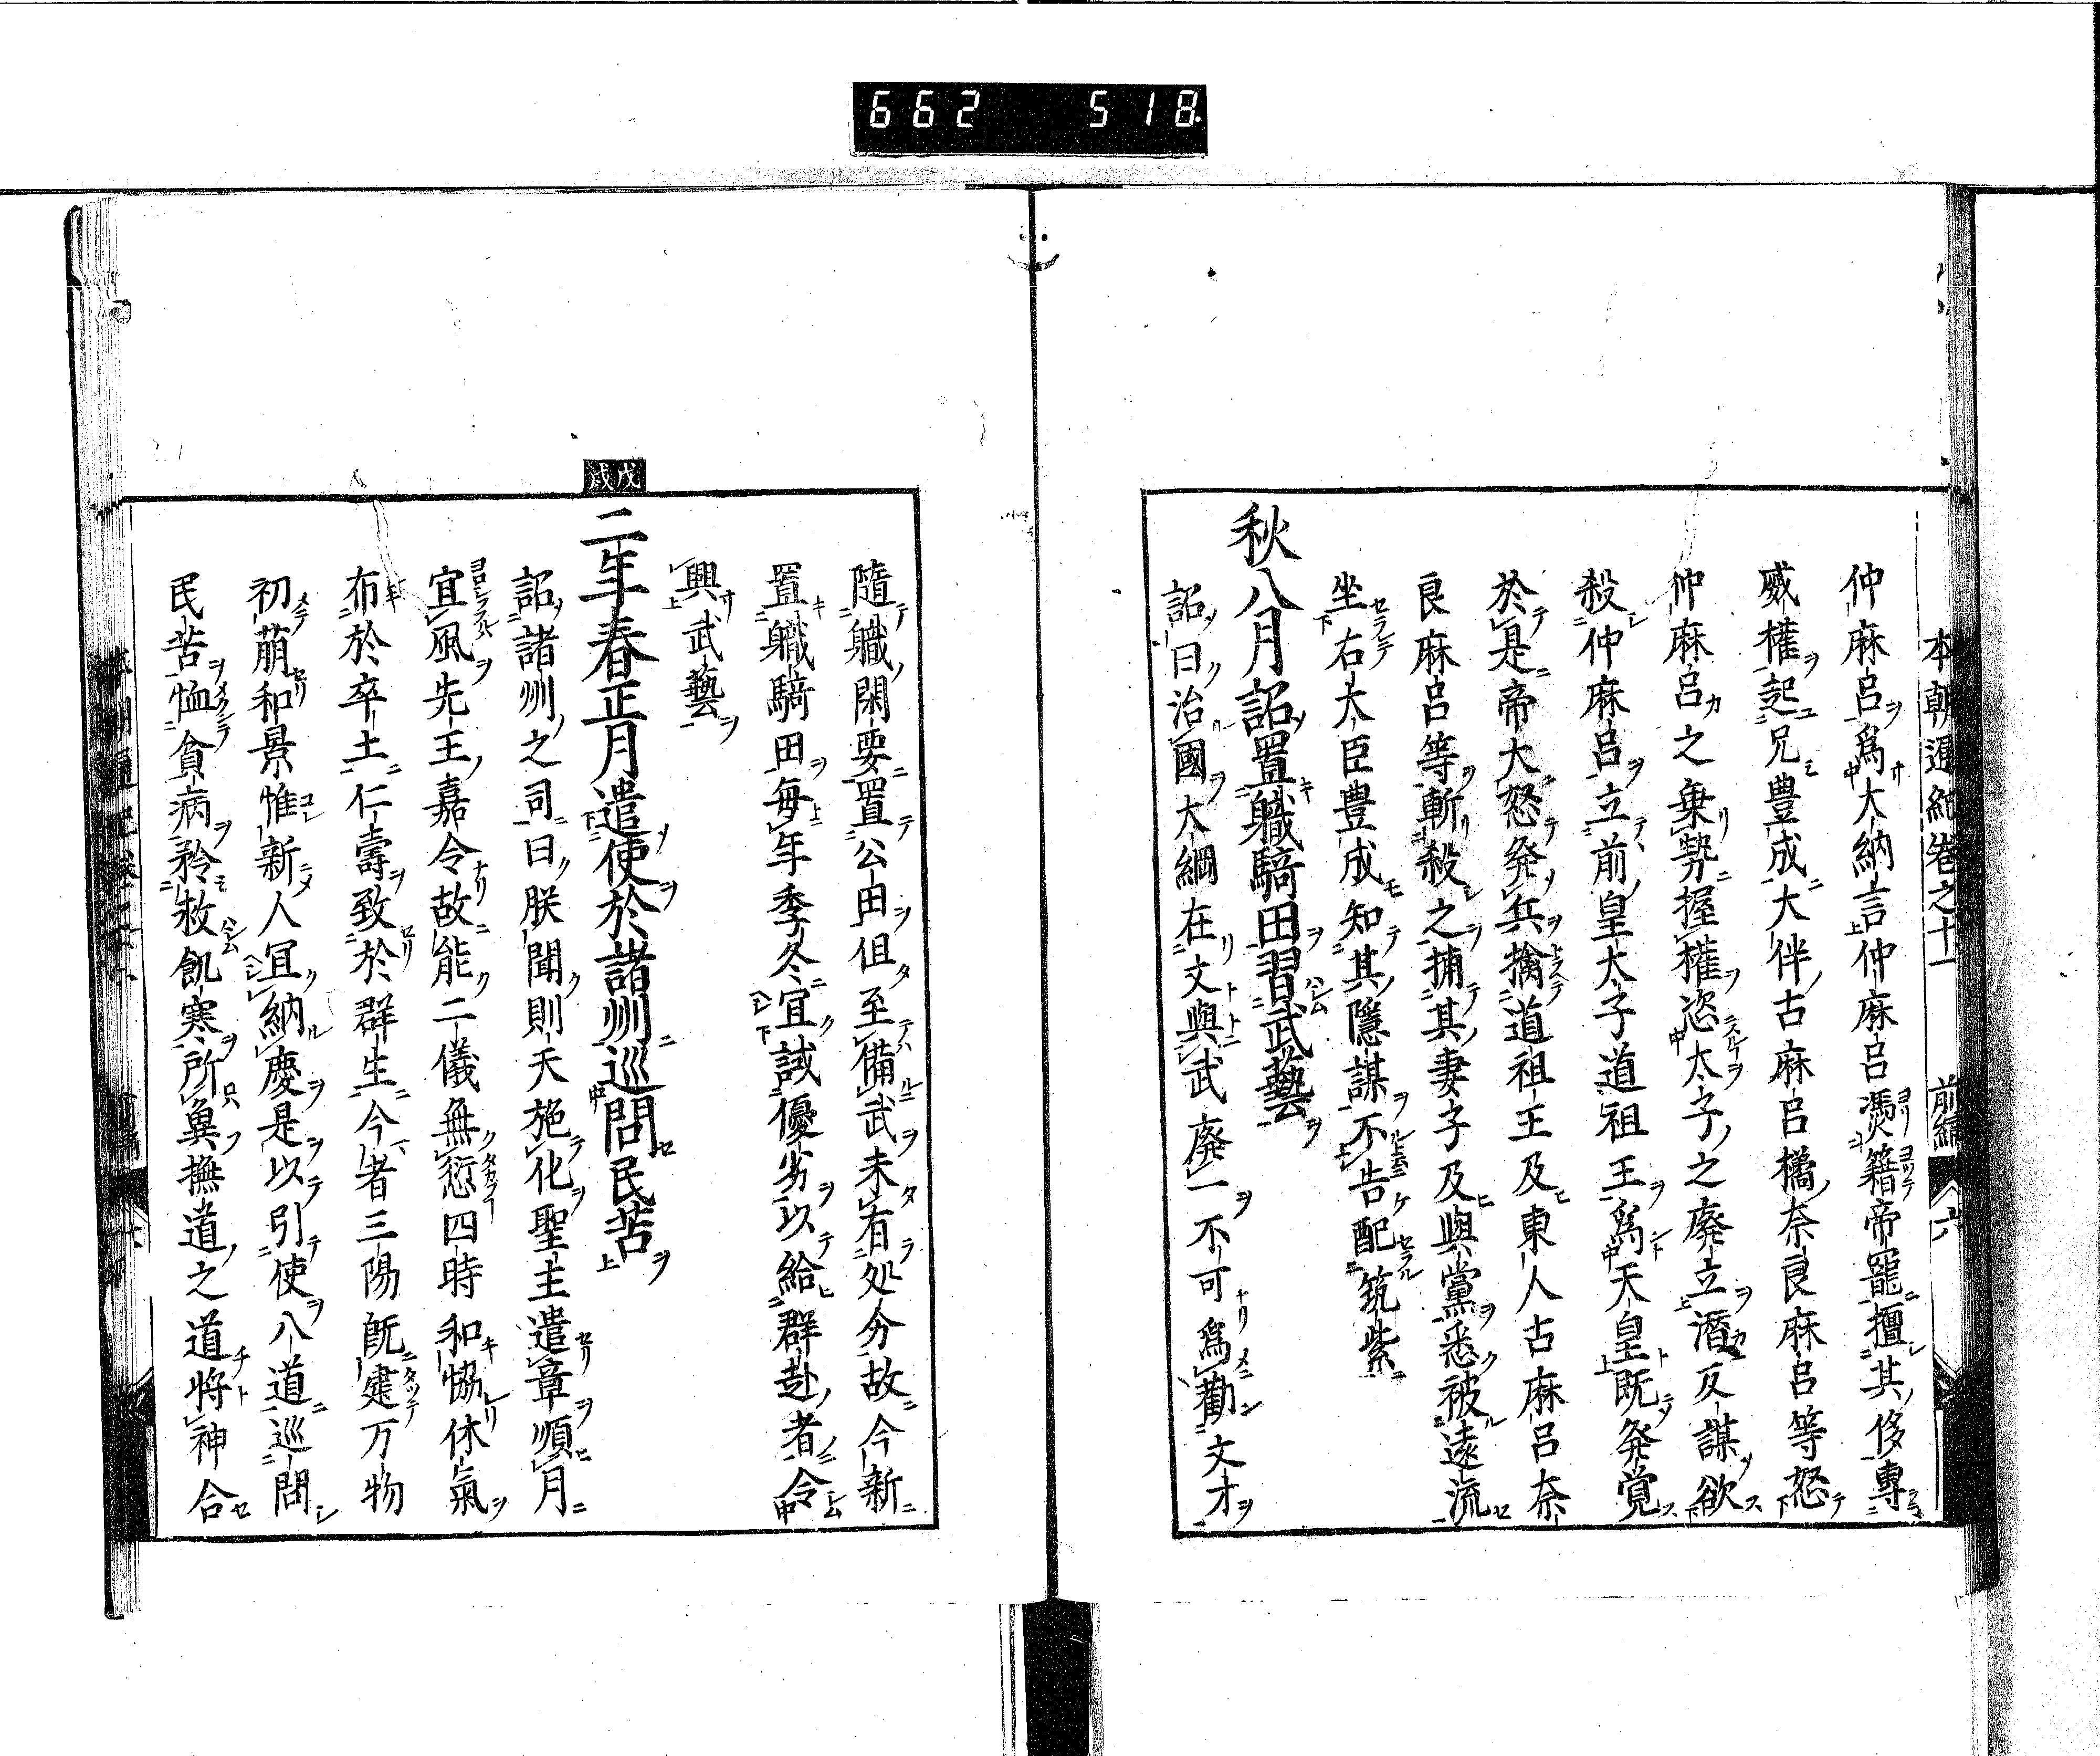 662 518
本朝通紀卷之十一 前編 六
仲麻呂爲大納言仲麻呂憑籍帝寵擅其侈專
威權起兄豊成大伴古麻呂橘奈良麻呂等怒
仲麻呂之乗勢握權恣太子之廃立潛反謀欲
殺仲麻呂立前皇太子道祖王爲天皇既発覚
於是帝大怒発兵擒道祖王及東人古麻呂奈
良麻呂等斬殺之捕其妻子及與黨悉被遠流
坐右大臣豊成知其隱謀不告配筑紫
秋八月詔置職騎田習武藝
詔曰治國大綱在文與武廃一不可爲勸文才
隨職閑要置公田但至備武未有処分故今新
置職騎田毎年季冬宜試優劣以給群赴者令
興武藝
戊戌
二年春正月遣使於諸洲巡問民苦
詔諸洲之司曰朕聞則天施化聖主遣章順月
宜風先王嘉令故能二儀無愆四時和恊休氣
布於卒土仁壽致於群生今者三陽既建万物
初萠和景惟新人宜納慶是以引使八道巡問
民苦恤貧病矜救飢寒所冀撫道之道将神合